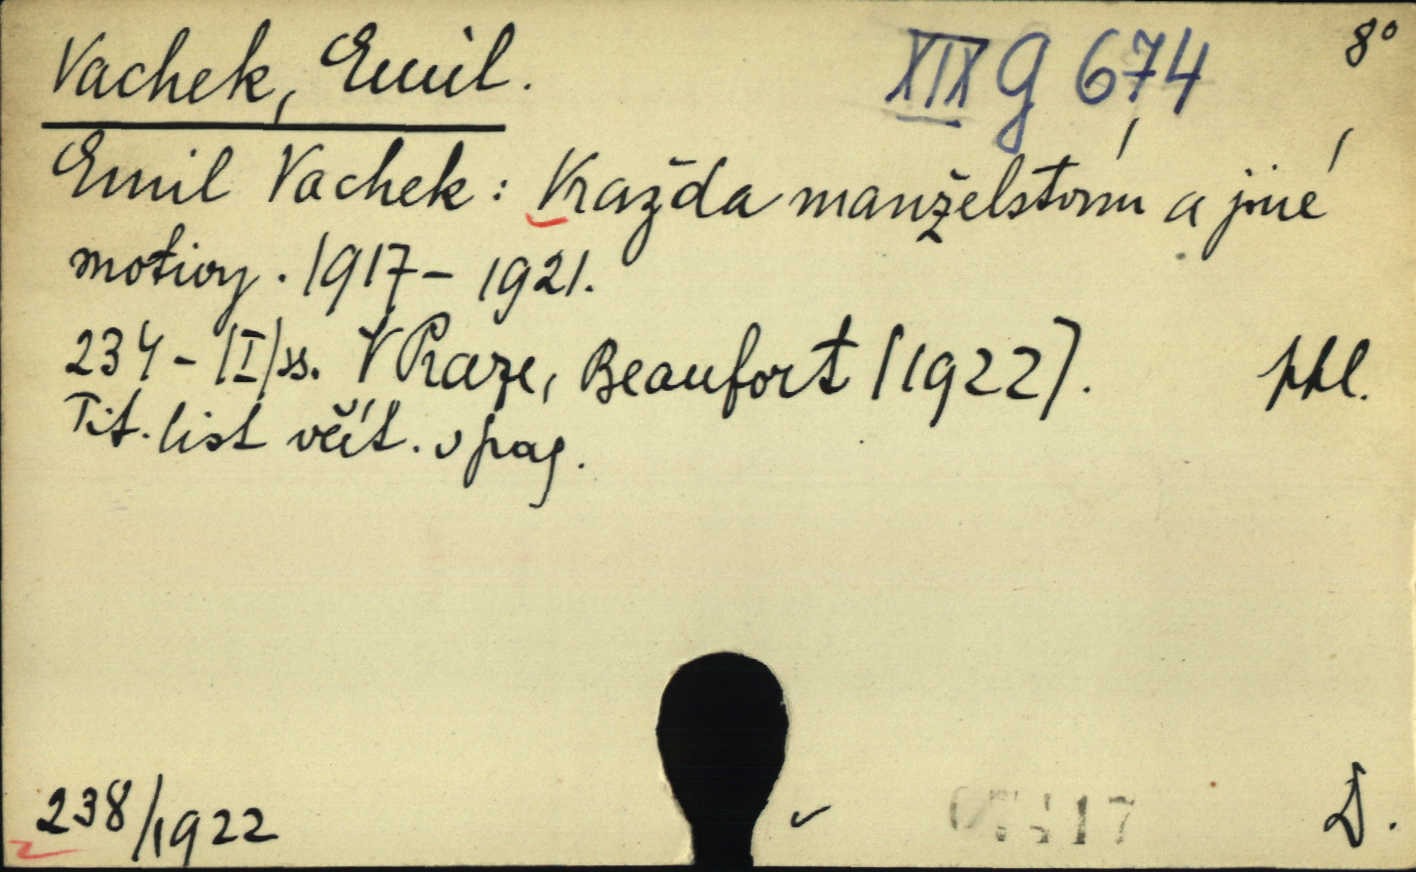 Vachek, Emil.
XIX G 674
8°
Emil Vachek: Vražda manželství a jiné
motivy. 1917 - 1921.
234 - [I] ss. V Praze, Beaufort [1922].
ppl.
Tit. list včít. v pag.
238/1922
D.